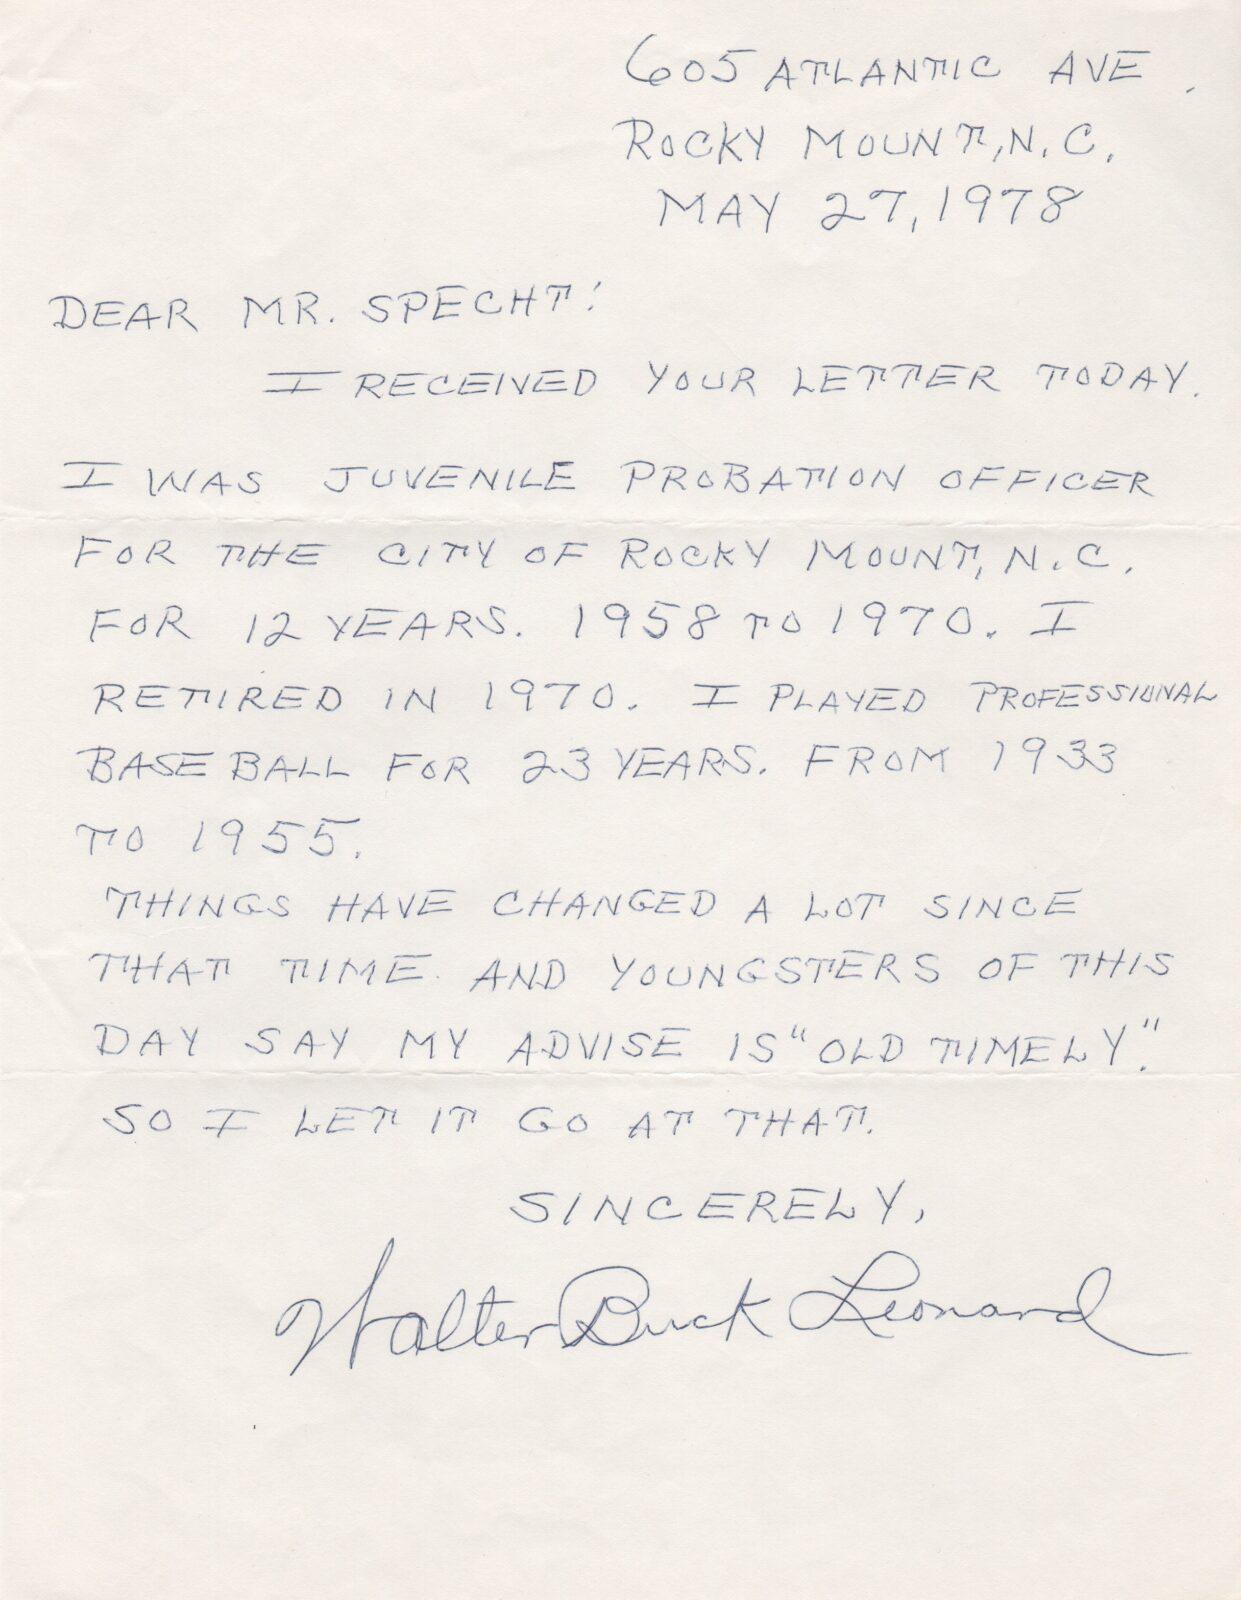 605 ATLANTIC AVE.
ROCKY MOUNT, N.C.
MAY 27, 1978
DEAR MR. SPECHT:
I RECEIVED YOUR LETTER TODAY.
I WAS JUVENILE PROBATION OFFICER
FOR THE CITY OF ROCKY MOUNT, N.C.
FOR 12 YEARS. 1958 TO 1970. I
RETIRED IN 1970. I PLAYED PROFESSIONAL
BASE BALL FOR 23 YEARS. FROM 1933
TO 1955.
THINGS HAVE CHANGED A LOT SINCE
THAT TIME AND YOUNGSTERS OF THIS
DAY SAY MY ADVISE IS "OLD TIMELY."
SO I LET IT GO AT THAT.
SINCERELY,
Walter Buck Leonard